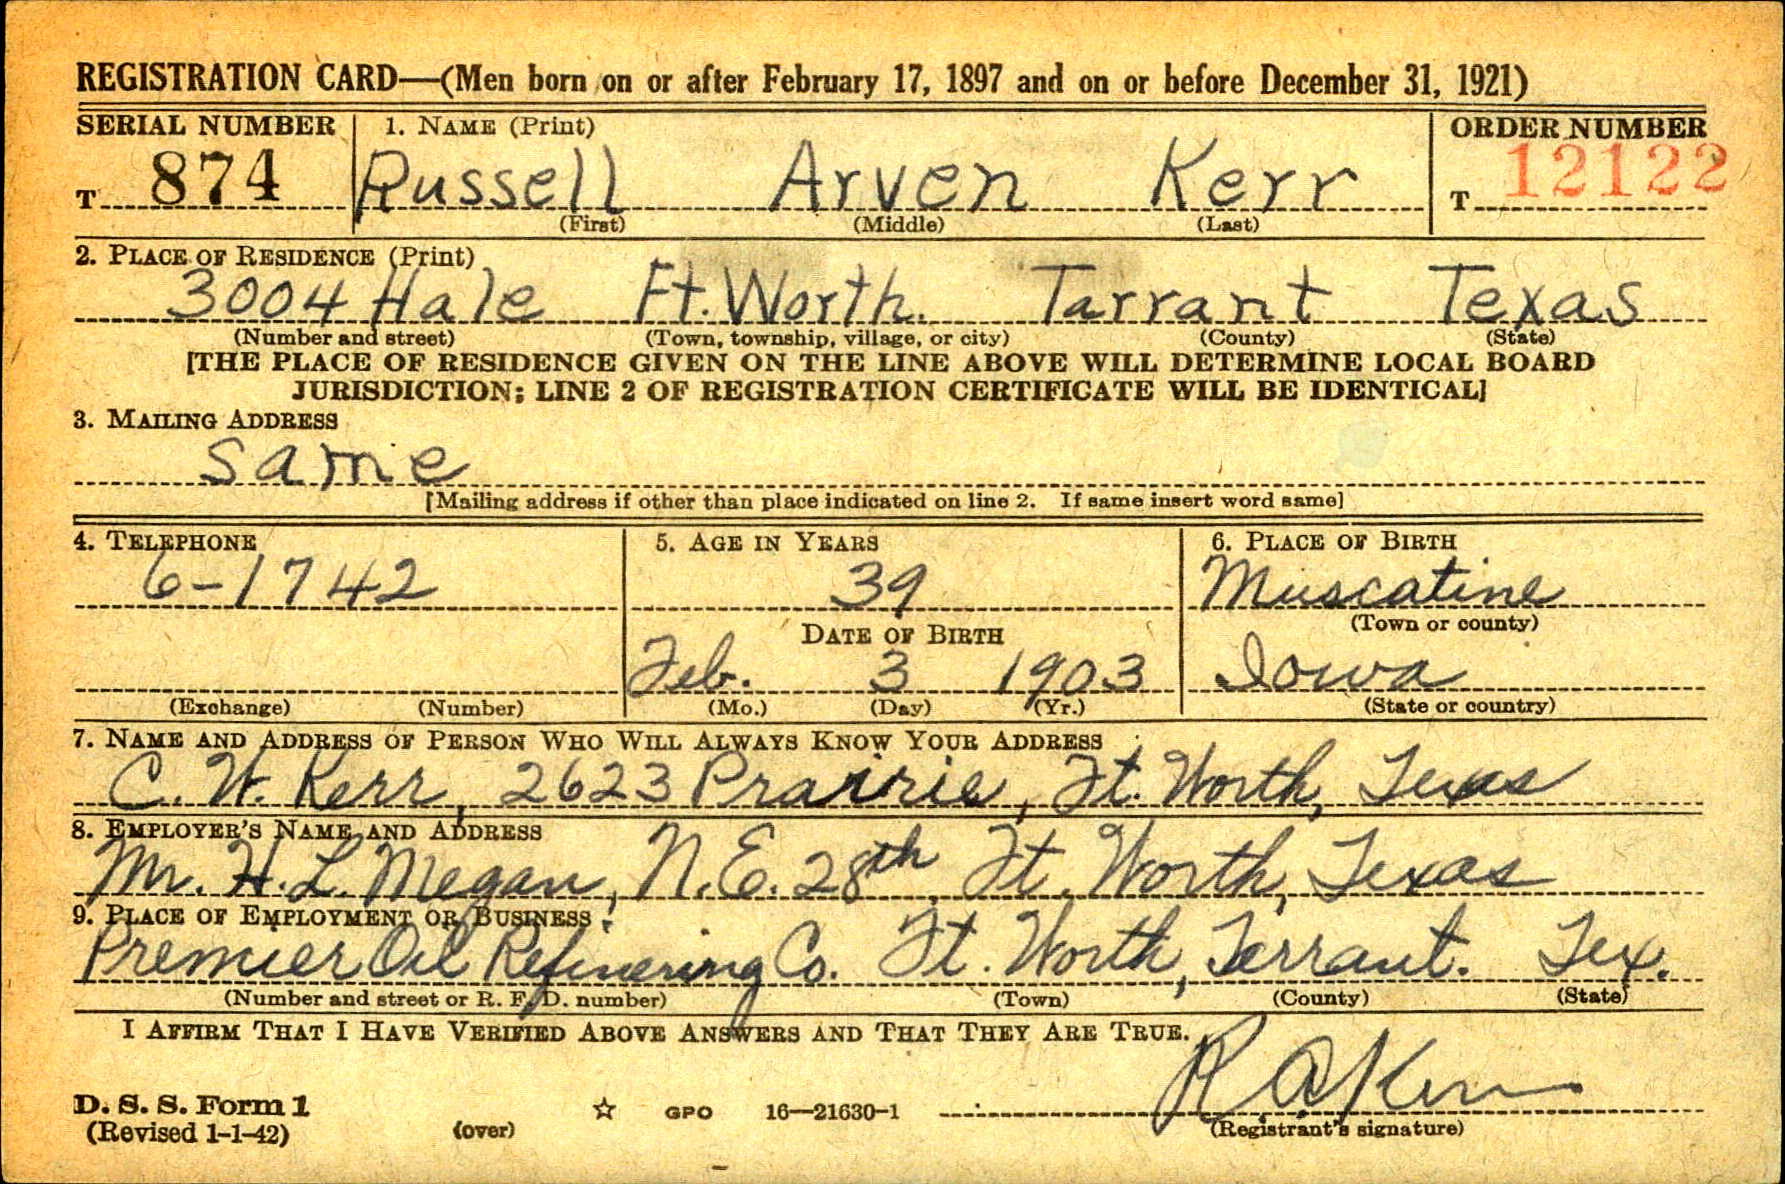 REGISTRATION CARD—(Men born on or after February 17, 1897 and on or before December 31, 1921)
SERIAL NUMBER 1. NAME (Print) ORDER NUMBER
T 874 Russell Arven Kerr T 12122
(First) (Middle) (Last)
2. PLACE OF RESIDENCE (Print)
3004 Hale Ft. Worth. Tarrant Texas
(Number and street) (Town, township, village, or city) (County) (State)
[THE PLACE OF RESIDENCE GIVEN ON THE LINE ABOVE WILL DETERMINE LOCAL BOARD
JURISDICTION; LINE 2 OF REGISTRATION CERTIFICATE WILL BE IDENTICAL]
3. MAILING ADDRESS
same
[Mailing address if other than place indicated on line 2. If same insert word same]
4. TELEPHONE 5. AGE IN YEARS 6. PLACE OF BIRTH
6-1742 39 Muscatine
DATE OF BIRTH (Town or county)
Feb. 3 1903 Iowa
(Exchange) (Number) (Mo.) (Day) (Yr.) (State or country)
7. NAME AND ADDRESS OF PERSON WHO WILL ALWAYS KNOW YOUR ADDRESS
C. W. Kerr, 2623 Prairie, Ft. Worth, Texas
8. EMPLOYER'S NAME AND ADDRESS
Mr. H. L. Megan, N.E. 28th, Ft. Worth, Texas
9. PLACE OF EMPLOYMENT OR BUSINESS
Premier Oil Refinering Co. Ft. Worth, Terrant. Tex.
(Number and street or R. F. D. number) (Town) (County) (State)
I AFFIRM THAT I HAVE VERIFIED ABOVE ANSWERS AND THAT THEY ARE TRUE.
R A Kerr
D. S. S. Form 1
(Revised 1-1-42) (over) ☆ GPO 16—21630-1 (Registrant's signature)